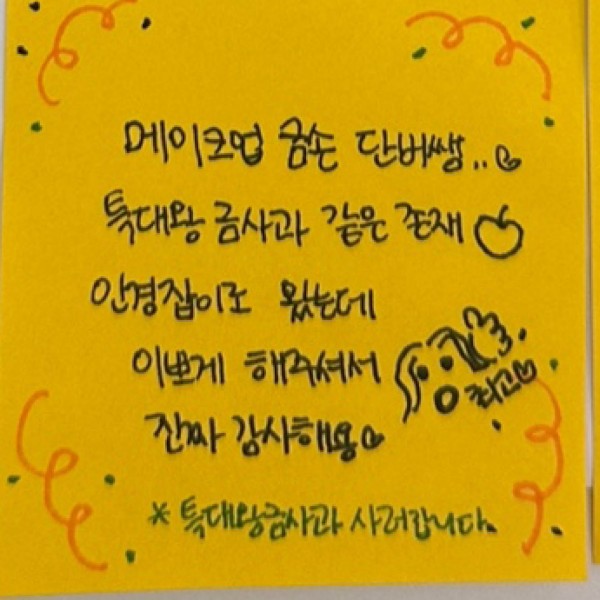 메이크업 금손 단버쌩..♡
특대왕 금사과 같은 존재
안경잡이로 왔는데
이쁘게 해주셔서
최고♡
잔짜 감사해용♡
* 특대왕금사과 사러갑니다.